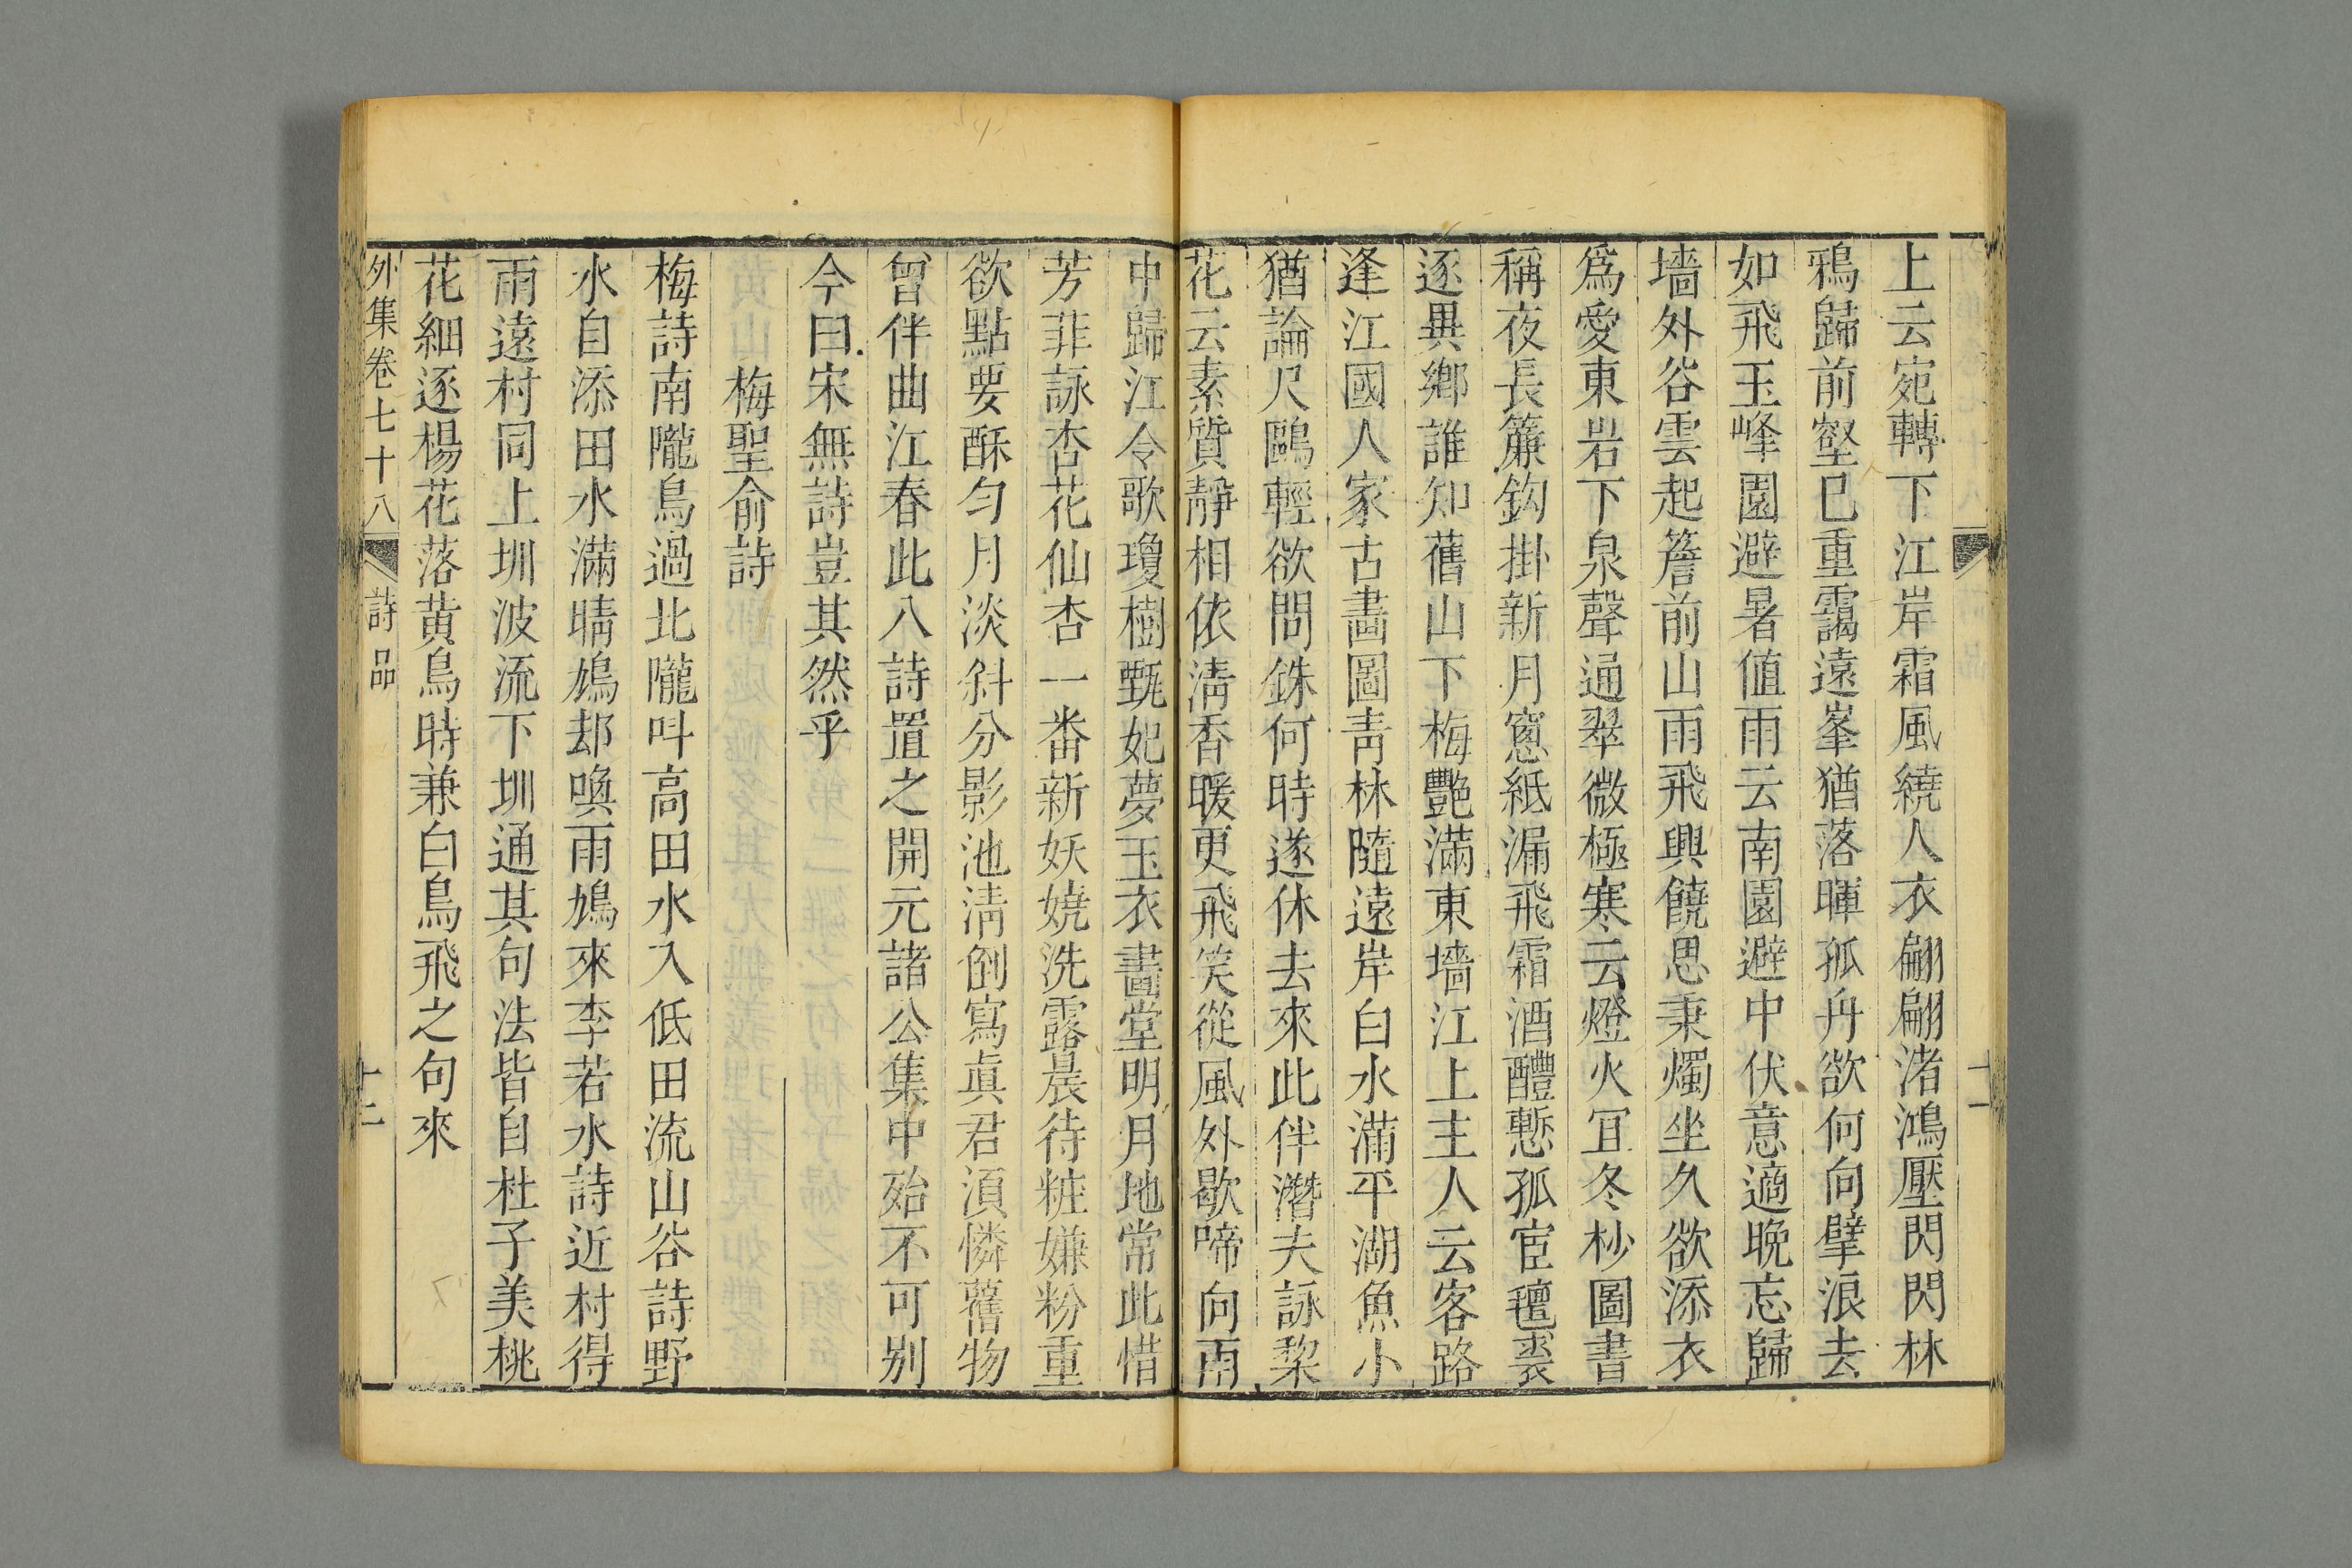 上云宛轉下江岸霜風繞人衣翩翩渚鴻壓閃閃林
鴉歸前壑已重靄遠峯猶落暉孤舟欲何向擘浪去
如飛玉峰園避暑值雨云南園避中伏意適晚忘歸
墻外谷雲起簷前山雨飛興饒思秉燭坐久欲添衣
爲愛東岩下泉聲通翠微極寒云燈火冝冬杪圖書
稱夜長簾鈎掛新月窻紙漏飛霜酒醴慙孤宦氊裘
逐異鄉誰知舊山下梅艷滿東墻江上主人云客路
逢江國人家古畵圖靑林隨遠岸白水滿平湖魚小
猶論尺鷗輕欲問銖何時遂休去來此伴潛夫詠棃
花云素質靜相依淸香暖更飛笑從風外歇啼向雨
中歸江令歌瓊樹甄妃夢玉衣畵堂明月地常此惜
芳菲詠杏花仙杏一番新妖嬈洗露晨待粧嫌粉重
欲點要酥勻月淡斜分影池淸倒寫眞君湏憐舊物
曾伴曲江春此八詩置之開元諸公集中殆不可别
今曰宋無詩豈其然乎
梅聖俞詩
梅詩南隴鳥過北隴呌高田水入低田流山谷詩野
水自添田水滿晴鳩却喚雨鳩來李若水詩近村得
雨遠村同上圳波流下圳通其句法皆自杜子美桃
花細逐楊花落黄鳥時兼白鳥飛之句來
外集卷七十八
詩品
十二